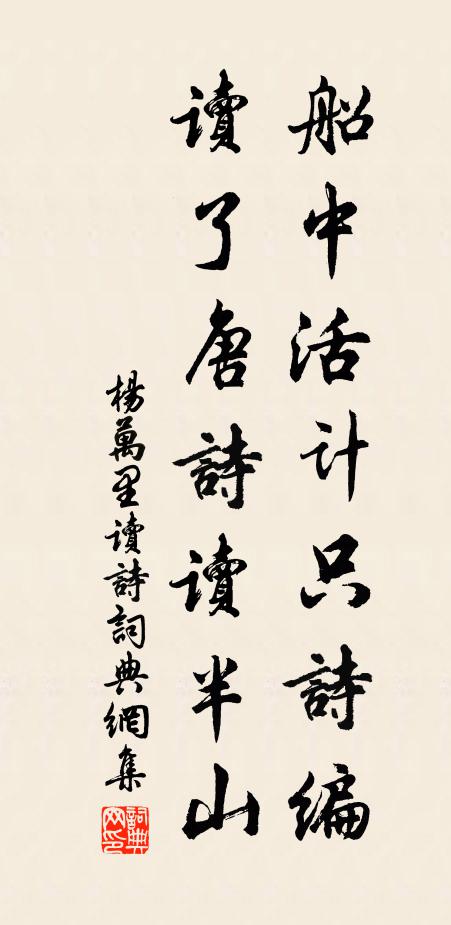 船中活计只詩編
讀了唐詩讀半山
楊萬里讀詩詞典網集
詞典网印